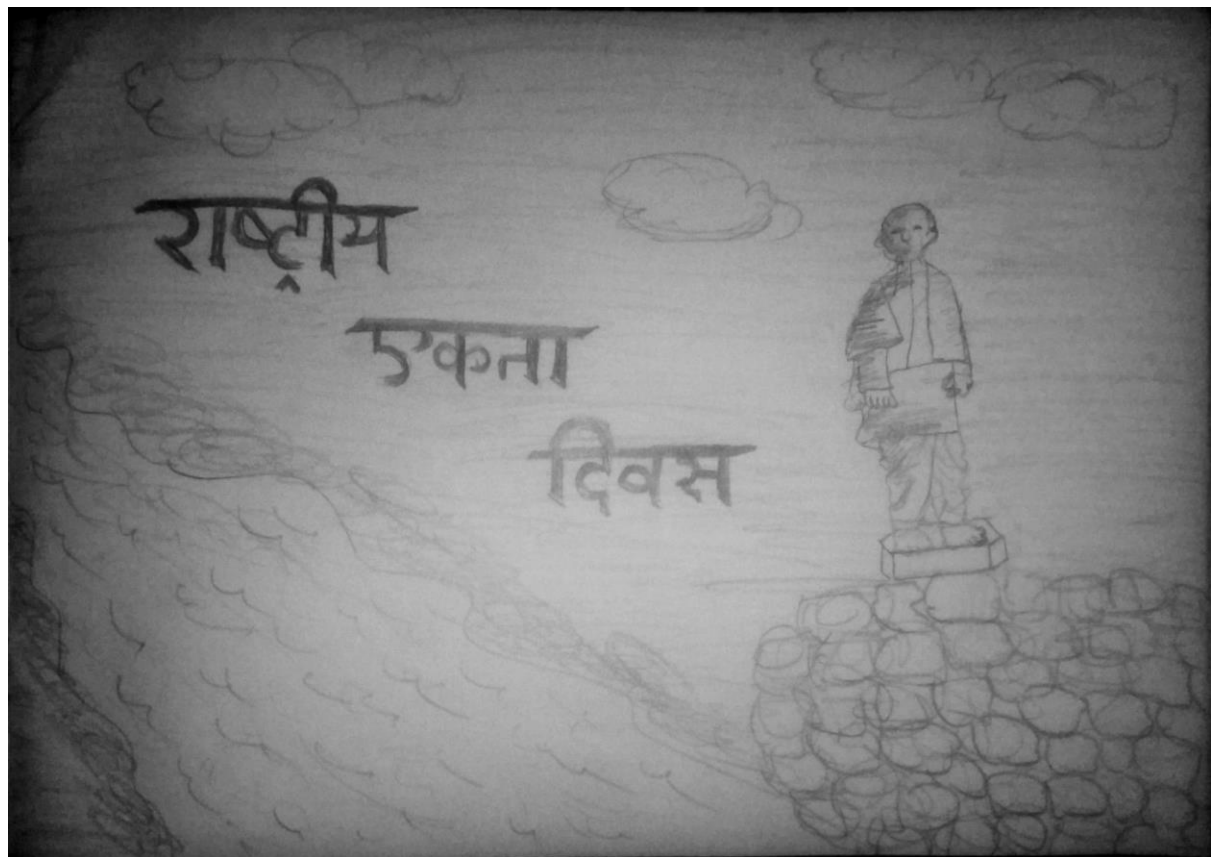 राष्ट्रीय
एकता
दिवस